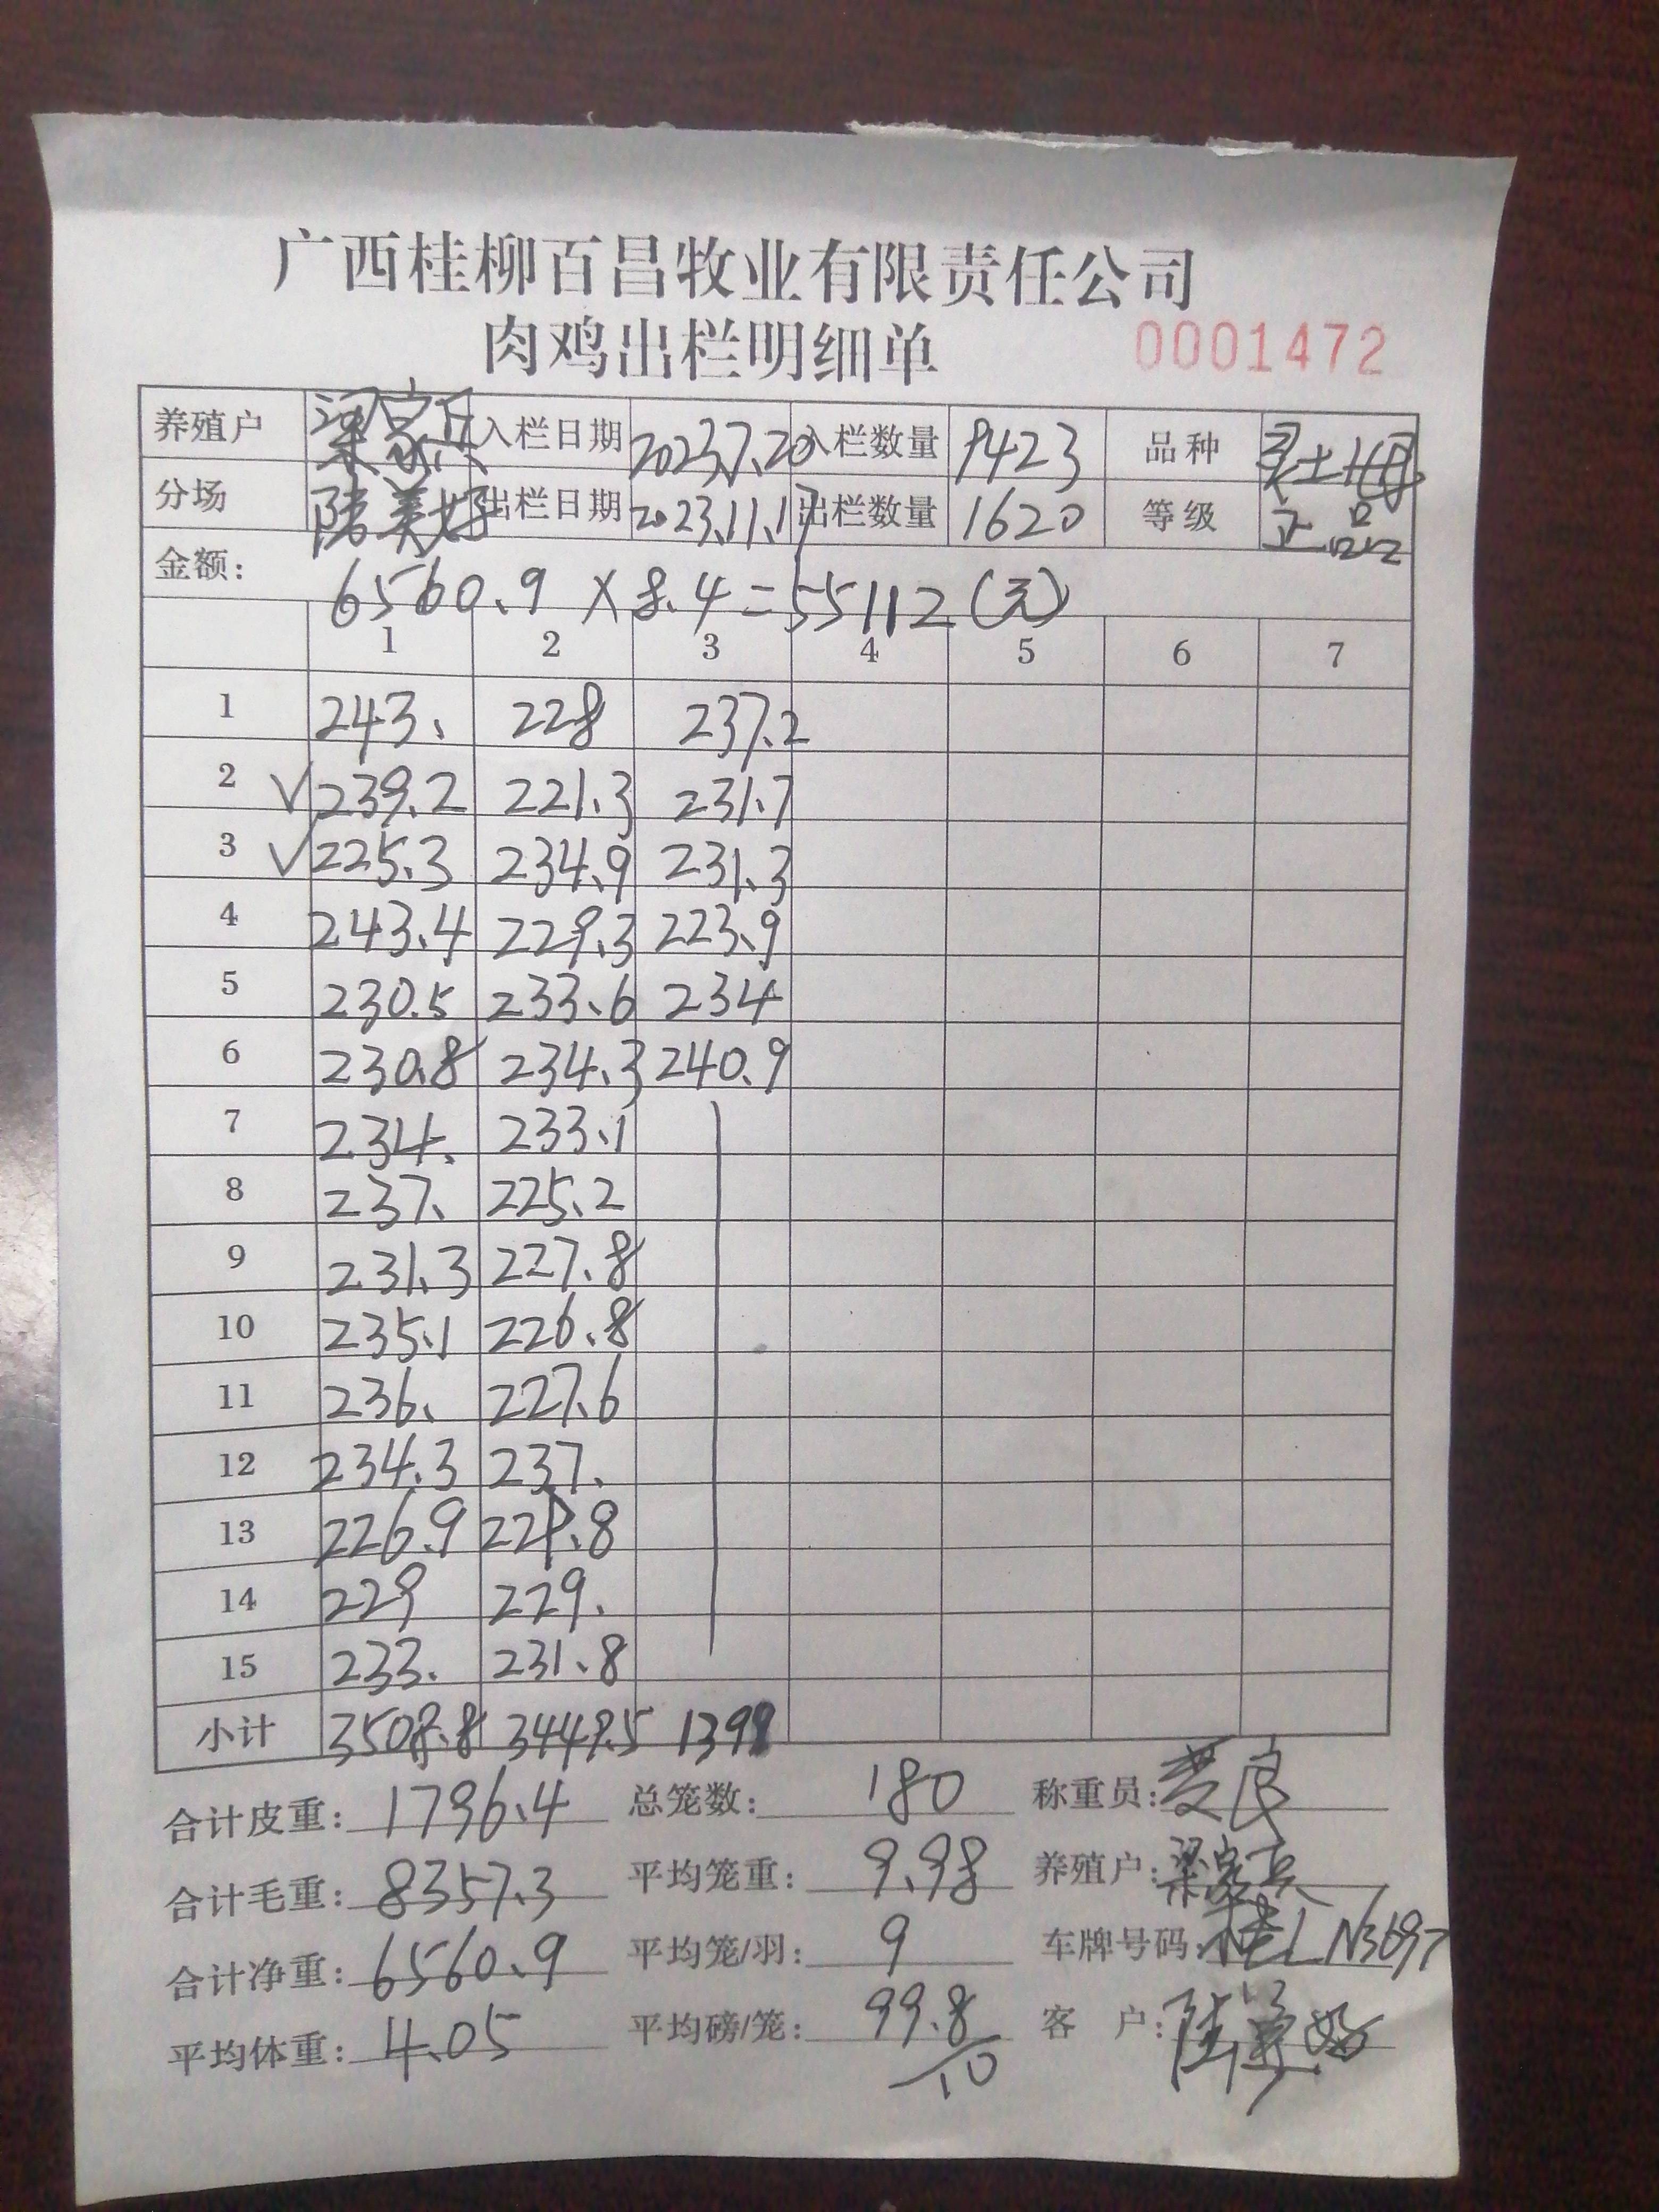 广西桂柳百昌牧业有限责任公司
肉鸡出栏明细单 0001472
养殖户 梁家兵 入栏日期 2023.7.20 入栏数量 9423 品种 灵土母
分场 陆美好 出栏日期 2023.11.17 出栏数量 1620 等级 正品
金额: 6560.9 × 8.4 = 55112(元)
1 2 3 4 5 6 7
1 243. 228 237.2
2 √239.2 221.3 231.7
3 √225.3 234.9 231.3
4 243.4 229.3 223.9
5 230.5 233.6 234
6 230.8 234.3 240.9
7 234. 233.1
8 237. 225.2
9 231.3 227.8
10 235.1 226.8
11 236. 227.6
12 234.3 237.
13 226.9 229.8
14 229 229.
15 233. 231.8
小计 3508.8 3449.5 1399
合计皮重: 1796.4 总笼数: 180 称重员:
合计毛重: 8357.3 平均笼重: 9.98 养殖户: 梁家兵
合计净重: 6560.9 平均笼/羽: 9 车牌号码: 桂L N3697
平均体重: 4.05 平均磅/笼: 99.8/10 客 户: 陆美好